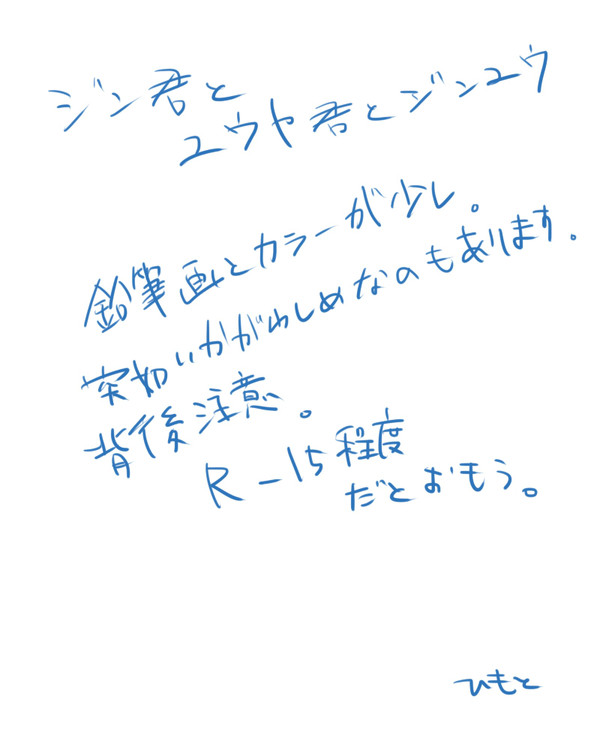 ジン君と
ユウヤ君とジンユウ
鉛筆画とカラーが少し。
突如いかがわしめなのもあります。
背後注意。
R-15程度
だとおもう。
ひもと